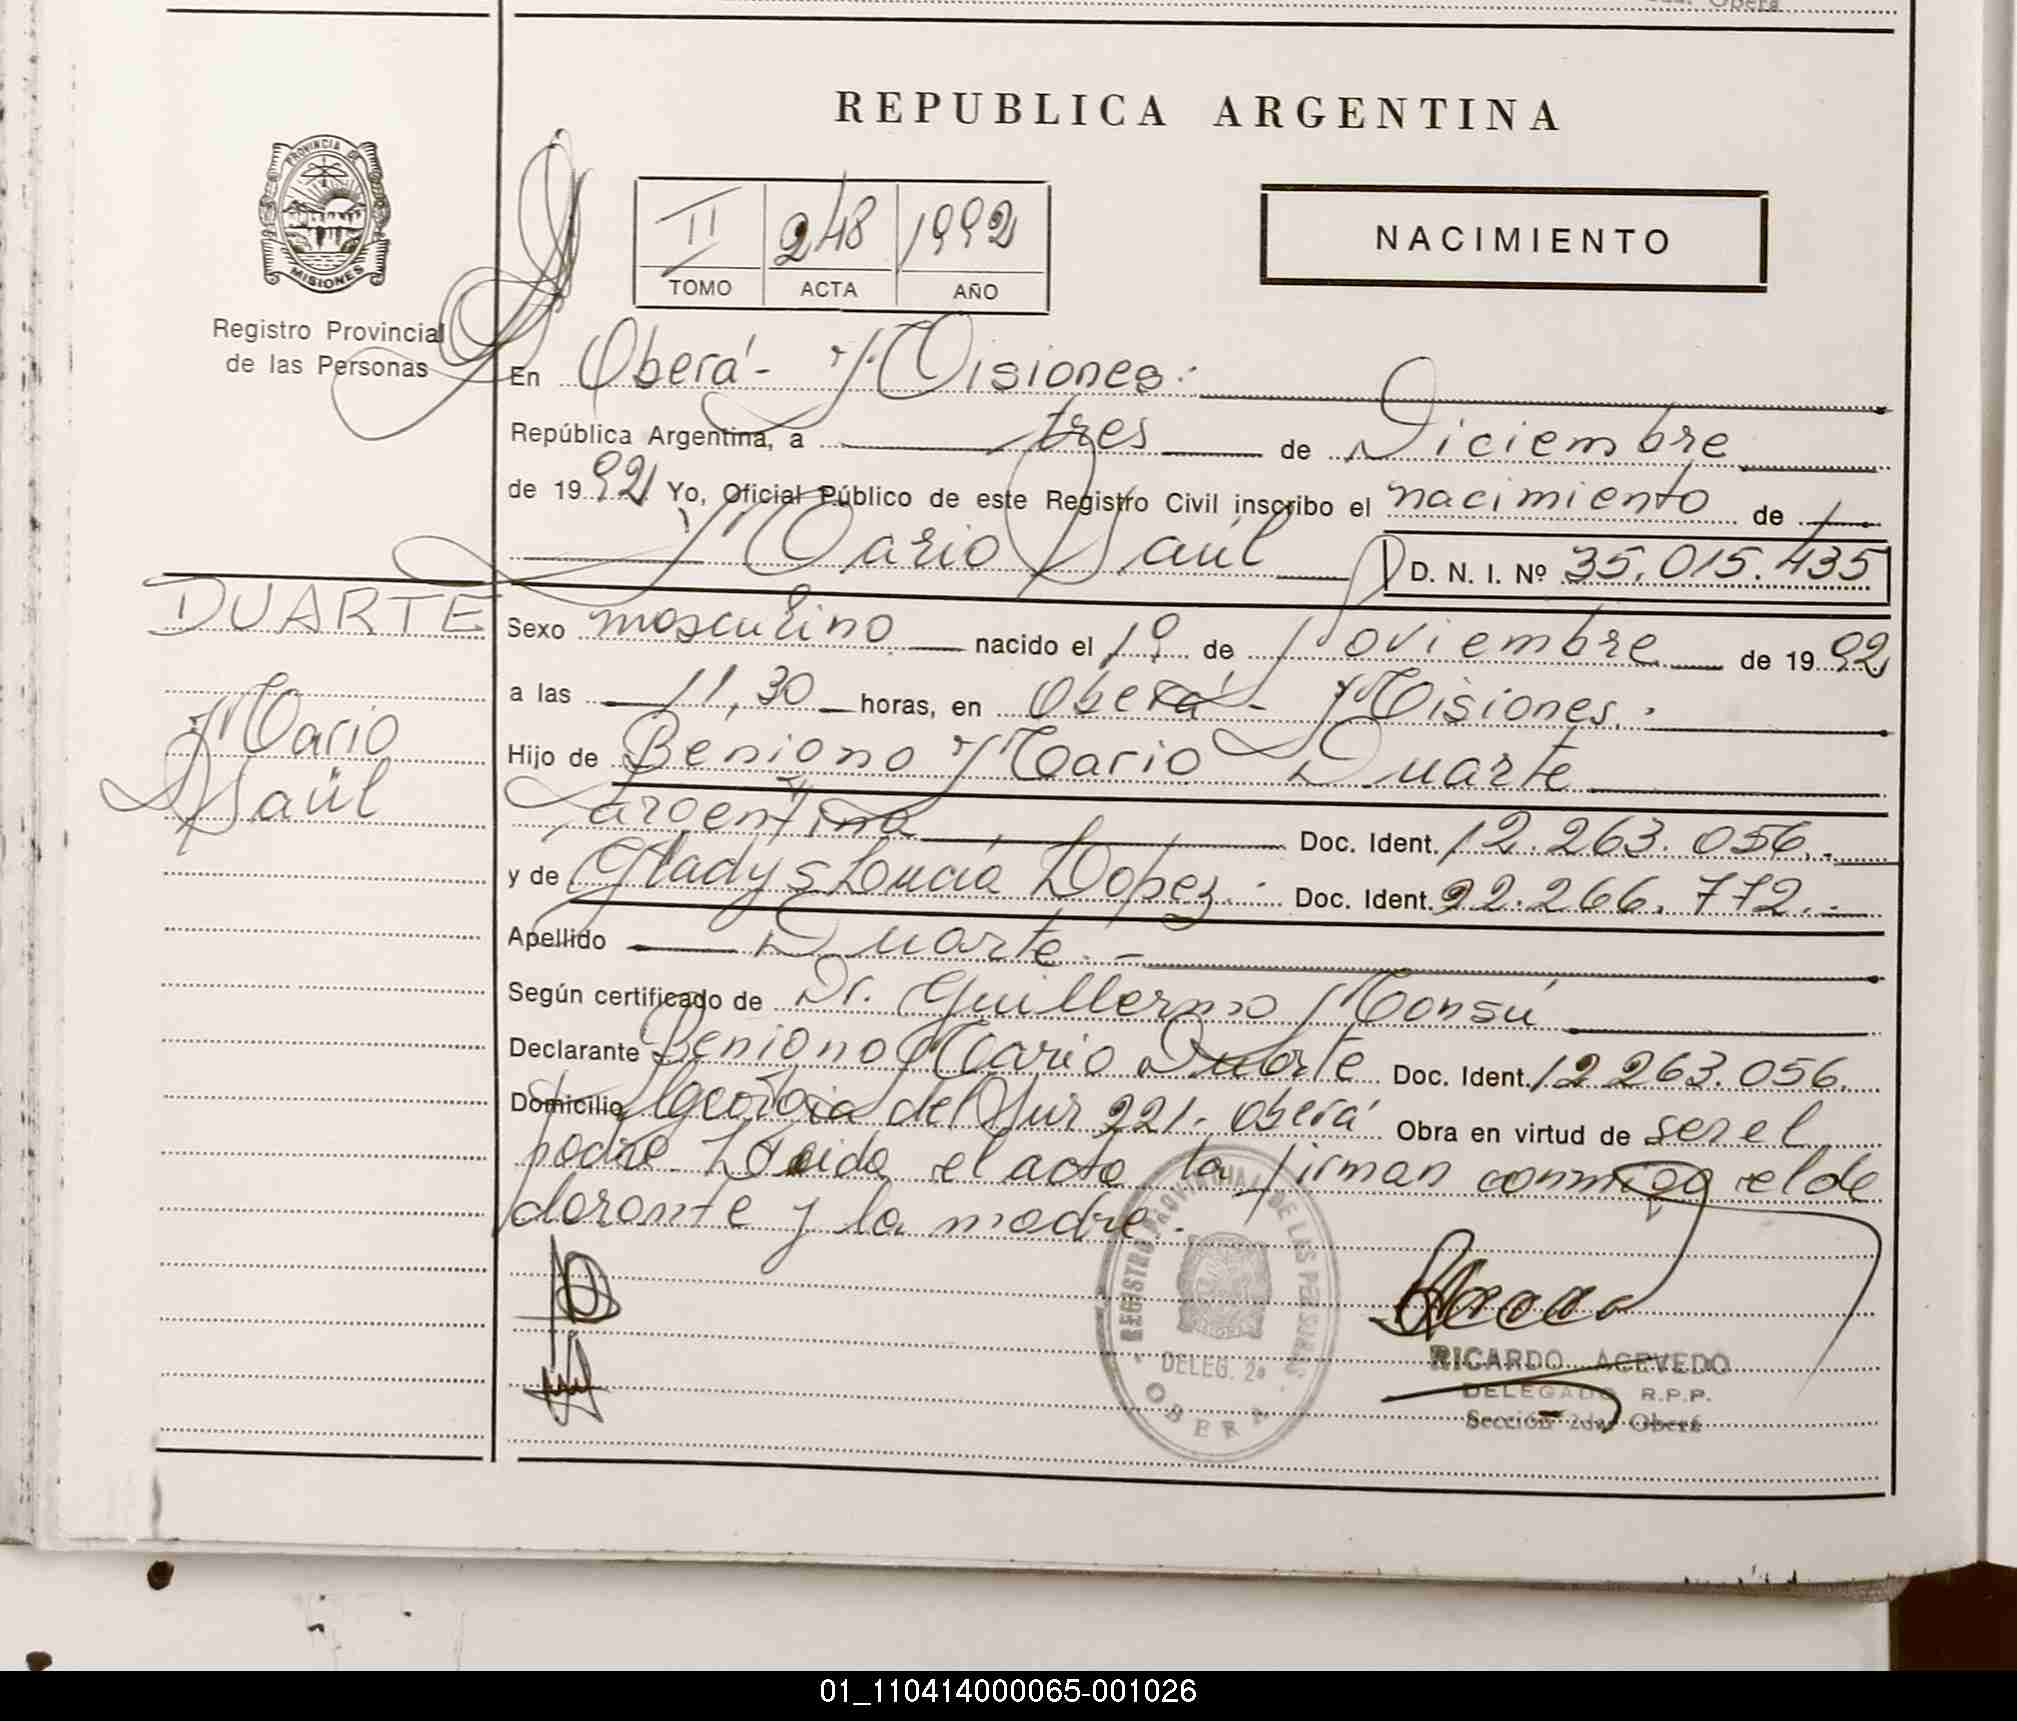 Obera
REPUBLICA ARGENTINA
PROVINCIA DE
MISIONES
II 248 1992
TOMO ACTA AÑO
NACIMIENTO
Registro Provincial
de las Personas
En Oberá - Misiones.
República Argentina, a tres de Diciembre
de 1992 Yo, Oficial Público de este Registro Civil inscribo el nacimiento de
Mario Saúl D. N. I. Nº 35.015.435
DUARTE
Mario
Saúl
Sexo masculino nacido el 19 de Noviembre de 1992
a las 11,30 horas, en Oberá - Misiones.
Hijo de Benigno Mario Duarte
argentina Doc. Ident. 12.263.056.-
y de Gladys Lucía Lopez. Doc. Ident. 22.266.772.-
Apellido Duarte.-
Según certificado de Dr. Guillermo Monsú
Declarante Benigno Mario Duarte Doc. Ident. 12263.056.
Domicilio del Sur 221. Oberá Obra en virtud de ser el
padre. Leida el acta la firman conmigo el de
clarante y la madre.
REGISTRO PROVINCIAL DE LAS PERSONAS
DELEG. 2ª
OBERA
RICARDO ACEVEDO
DELEGADO R.P.P.
Sección 2da. Oberá
01_110414000065-001026